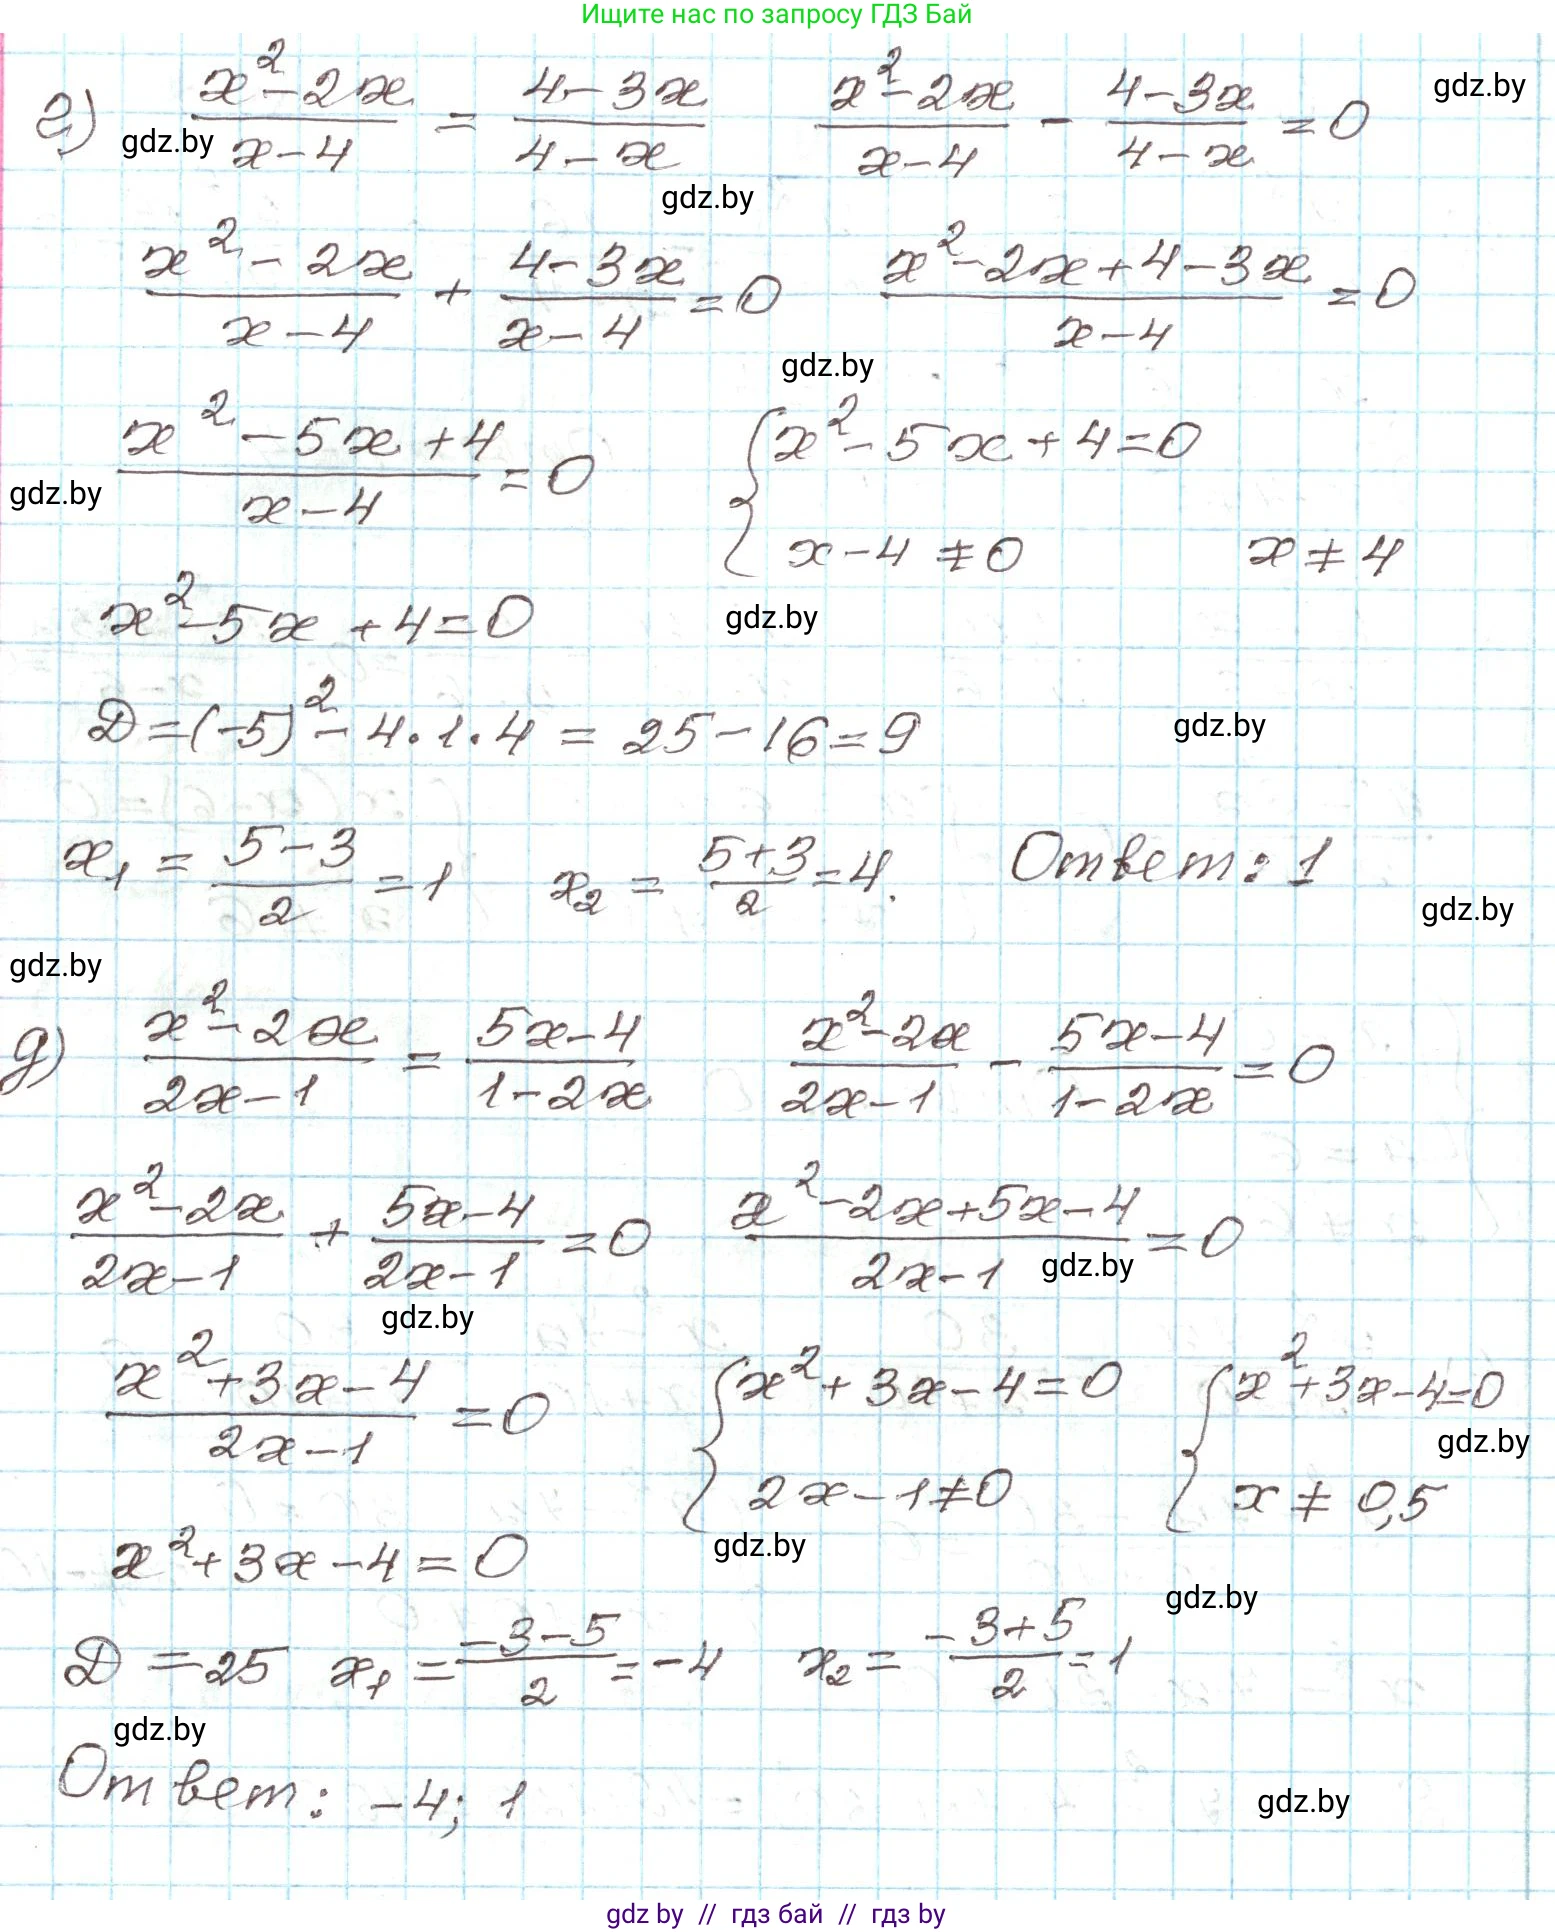 Ищите нас по запросу ГДЗ Бай
г) (x² - 2x)/(x - 4) = (4 - 3x)/(4 - x)   (x² - 2x)/(x - 4) - (4 - 3x)/(4 - x) = 0 gdz.by
gdz.by
gdz.by
(x² - 2x)/(x - 4) + (4 - 3x)/(x - 4) = 0   (x² - 2x + 4 - 3x)/(x - 4) = 0
gdz.by
(x² - 5x + 4)/(x - 4) = 0   { x² - 5x + 4 = 0
gdz.by
x - 4 ≠ 0   x ≠ 4
x² - 5x + 4 = 0 gdz.by
D = (-5)² - 4·1·4 = 25 - 16 = 9 gdz.by
x₁ = (5 - 3)/2 = 1   x₂ = (5 + 3)/2 = 4.   Ответ: 1
gdz.by
gdz.by
д) (x² - 2x)/(2x - 1) = (5x - 4)/(1 - 2x)   (x² - 2x)/(2x - 1) - (5x - 4)/(1 - 2x) = 0
(x² - 2x)/(2x - 1) + (5x - 4)/(2x - 1) = 0   (x² - 2x + 5x - 4)/(2x - 1) = 0
gdz.by
gdz.by
(x² + 3x - 4)/(2x - 1) = 0   { x² + 3x - 4 = 0   { x² + 3x - 4 = 0
gdz.by
2x - 1 ≠ 0   x ≠ 0,5
gdz.by
x² + 3x - 4 = 0
gdz.by
D = 25   x₁ = (-3 - 5)/2 = -4   x₂ = (-3 + 5)/2 = 1
gdz.by
Ответ: -4; 1
gdz.by
gdz by // гдз бай // гдз by